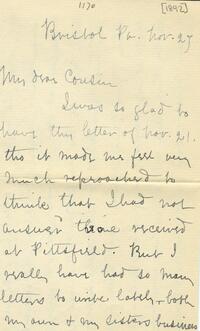 1170
[1892]
Bristol Pa. Nov. 27
My dear Cousin
I was so glad to
have thy letter of Nov. 21.
tho it made me feel very
much reproached to
think that I had not
answered thine received
at Pittsfield. But I
really have had so many
letters to write lately - both
my own & my sisters business